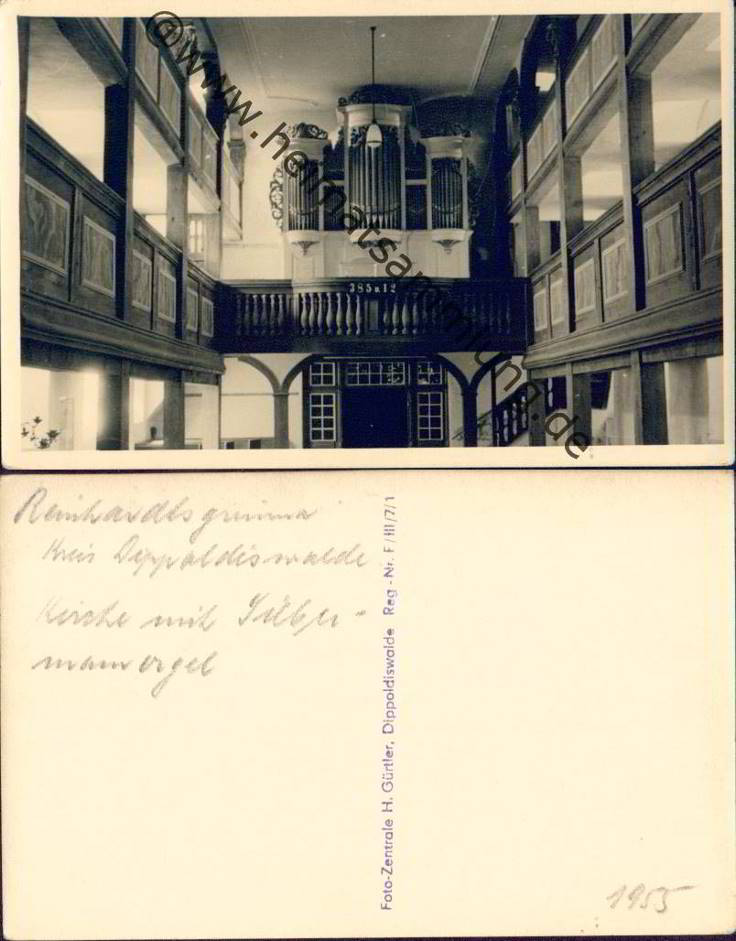 @www.heimatsammlung.de
385 u 12
Reinhardtsgrimma
Kreis Dippoldiswalde
Kirche mit Silber-
mannorgel
Foto-Zentrale H. Gürtler, Dippoldiswalde Reg-Nr. F/III/7/1
1955